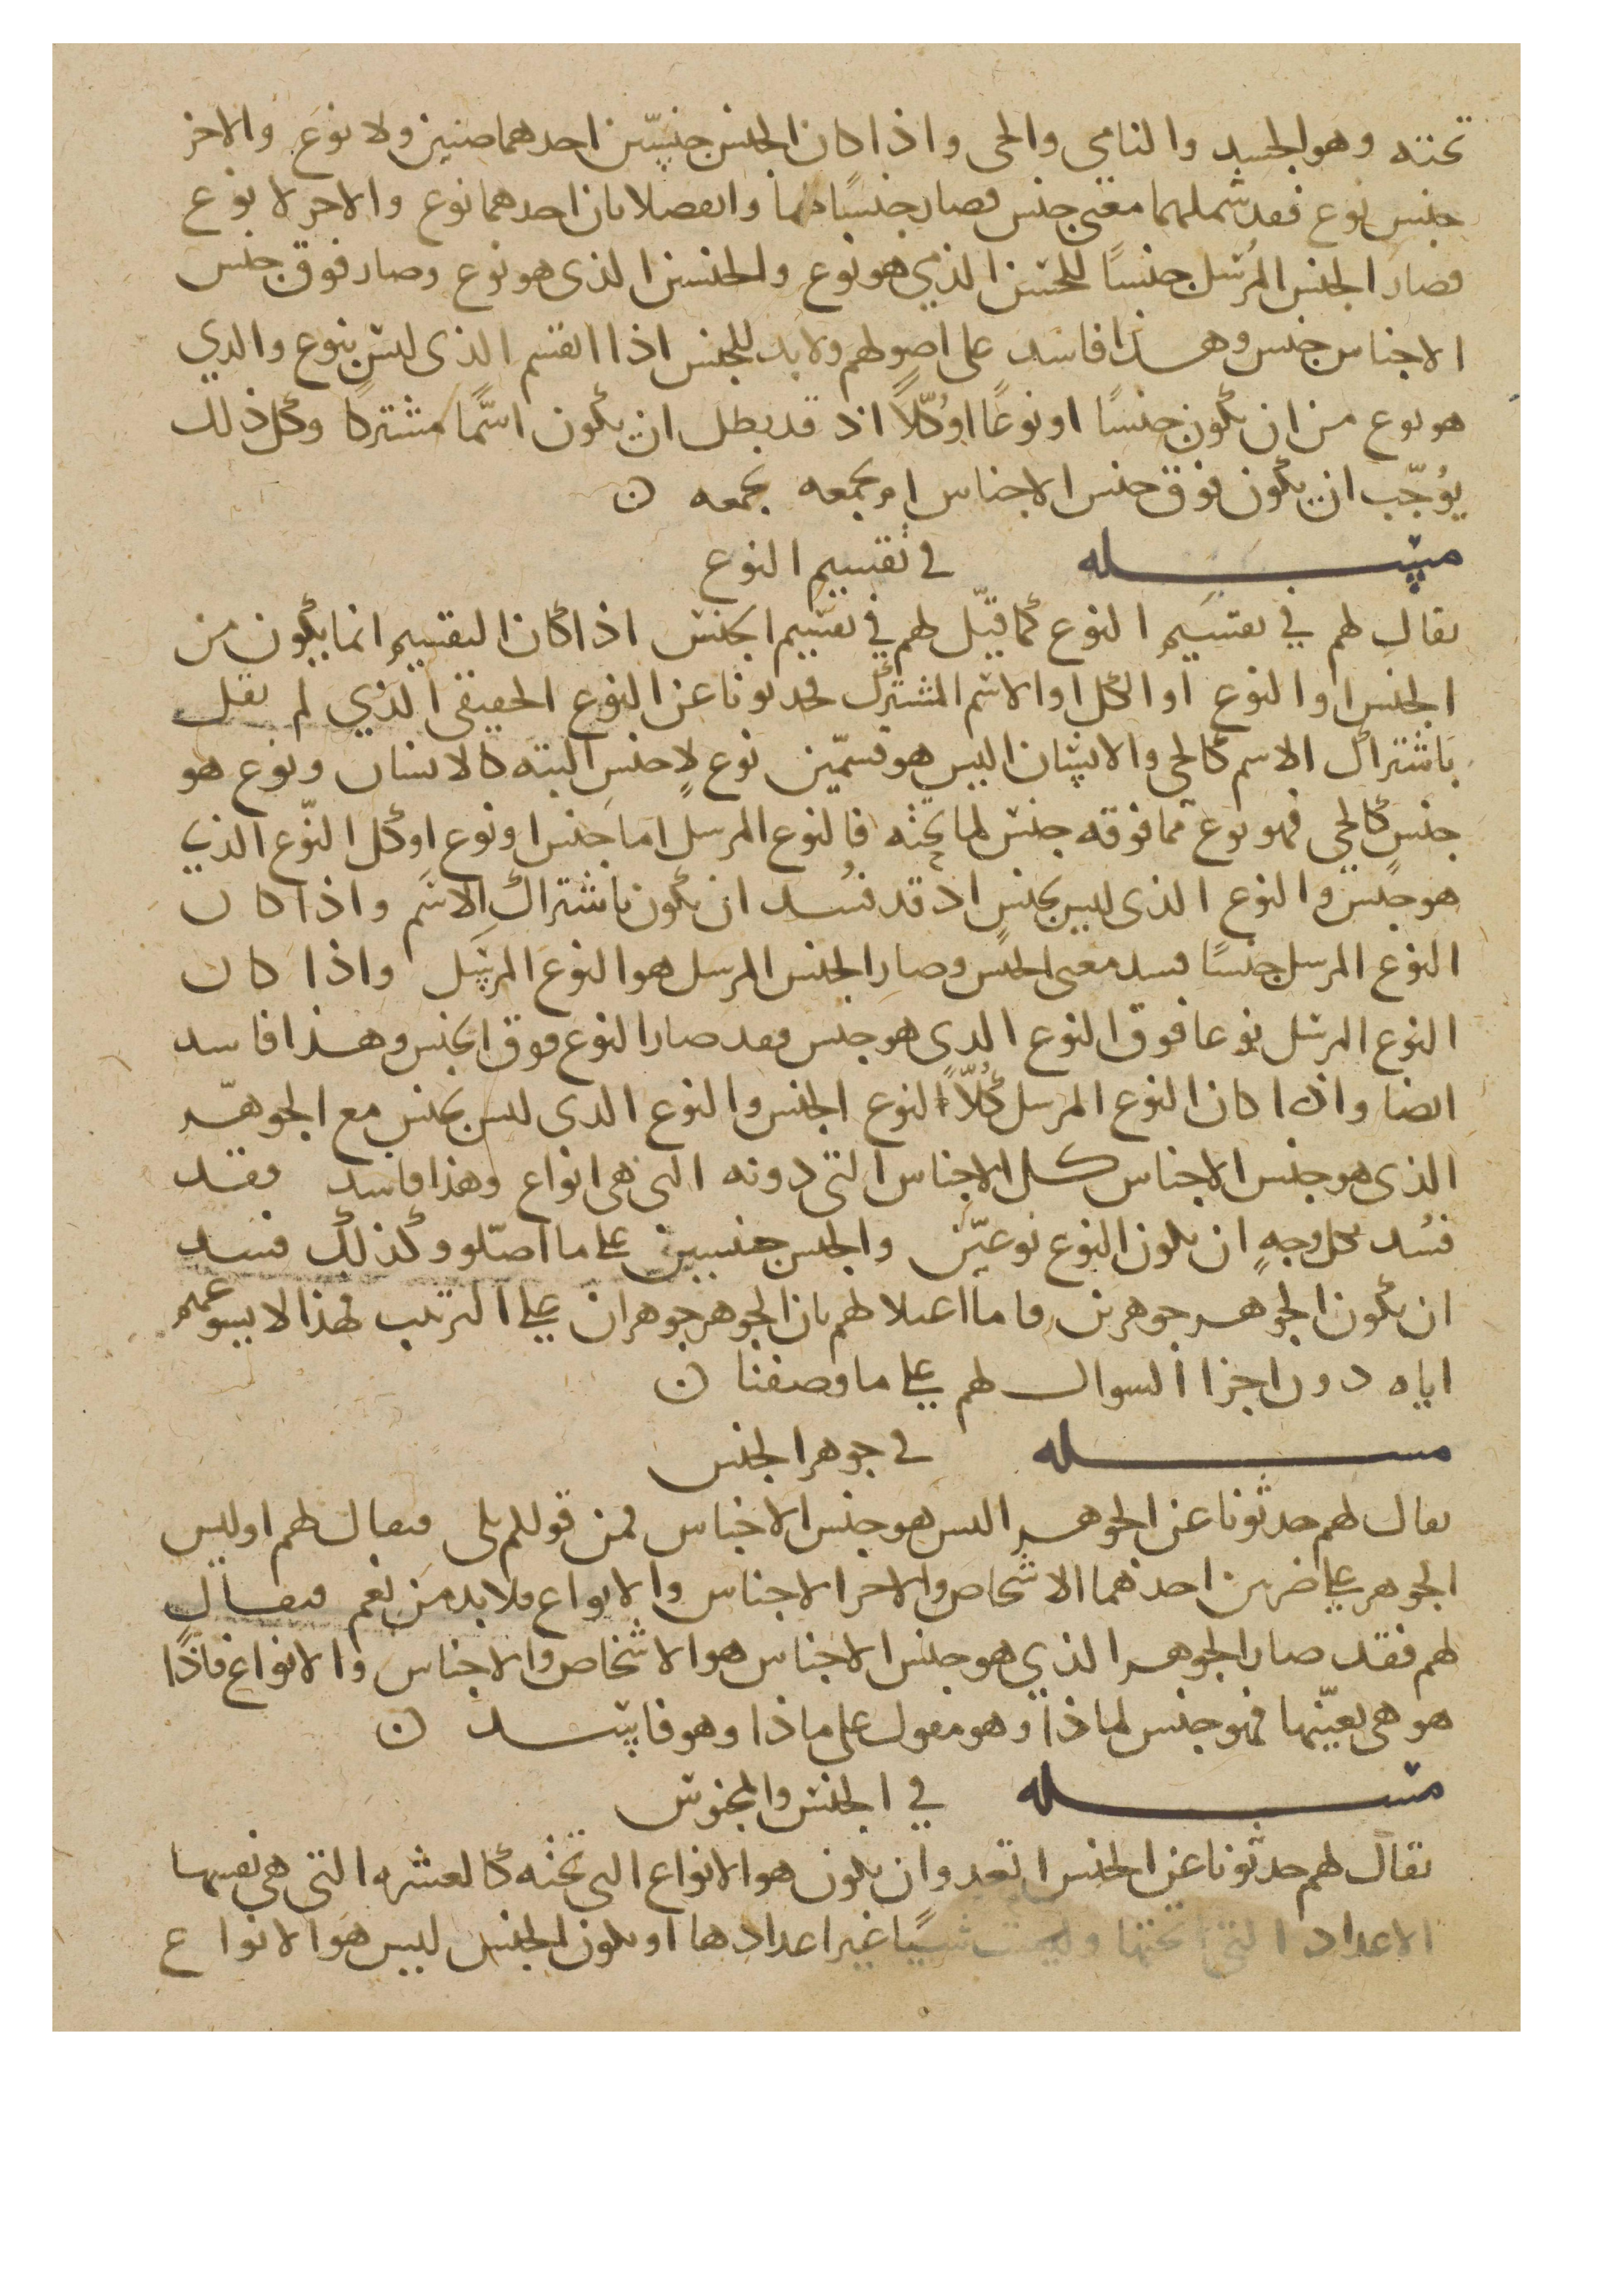 تحته وهو الجسد والنامي والحي واذا كان الجنس جنسين احدهما صنين ولا نوع والاخر
جنس نوع فقد شملهما معنى جنس فصار جنسًا لهما وانفصلا بان احدهما نوع والاخر لا نوع
فصار الجنس المرسل جنسًا للجنس الذي هو نوع والجنس الذى هو نوع وصار فوق جنس
الاجناس جنس وهذا فاسد على اصولهم ولا بد للجنس اذا انقسم الذى ليس بنوع والذي
هو نوع من ان يكون جنسًا او نوعًا او كلًّا اذ قد بطل ان يكون اسمًا مشتركًا وكل ذلك
يوجب ان يكون فوق جنس الاجناس امر يجمعه يجمعه ن
مسله في تقسيم النوع
يقال لهم في تقسيم النوع كما قيل لهم في تقسيم الجنس اذا كان التقسيم انما يكون من
الجنس او النوع او الكل او الاسم المشترك فحدثونا عن النوع الحقيقى الذي لم نقل
باشتراك الاسم كالحي والانسان اليس هو قسمين نوع لا جنس البته كالانسان ونوع هو
جنس كالحي فهو نوع مما فوقه جنس لما تحته فالنوع المرسل اما جنس او نوع او كل النوع الذي
هو جنس والنوع الذى ليس بجنس اذ قد فسد ان يكون باشتراك الاسم واذا كان
النوع المرسل جنسًا فسد معنى الجنس وصار الجنس المرسل هو النوع المرسل واذا كان
النوع المرسل نوعا فوق النوع الذى هو جنس فقد صار النوع فوق الجنس وهذا فاسد
ايضا واذا كان النوع المرسل كلًّا النوع الجنس والنوع الذى ليس بجنس مع الجوهر
الذى هو جنس الاجناس كل الاجناس التى دونه التى هى انواع وهذا فاسد فقد
فسد بكل وجهٍ ان يكون النوع نوعين والجنس جنسين على ما اصلو وكذلك فسد
ان يكون الجوهر جوهرين فاما لهم بان الجوهر جوهران على الترتيب فهذا لا
اياه دون اجزا السوال لهم على ما وصفنا ن
مسله في جوهر الجنس
يقال لهم حدثونا عن الجوهر اليس هو جنس الاجناس فمن قولهم بلى فيقال لهم اوليس
الجوهر على ضربين احدهما الاشخاص والاخر الاجناس والانواع فلا بد من نعم فيقال
لهم فقد صار الجوهر الذي هو جنس الاجناس هو الاشخاص والاجناس والانواع فاذًا
هو هى بعينها فهو جنس لماذا وهو مقول على ماذا وهو فاسد ن
مسله في الجنس والمجنوس
يقال لهم حدثونا عن الجنس ان يكون هو الانواع التى تحته كالعشره التى هى نفسها
الاعداد التى تحتها وليست شيًا غير اعدادها او يكون الجنس ليس هو الانواع